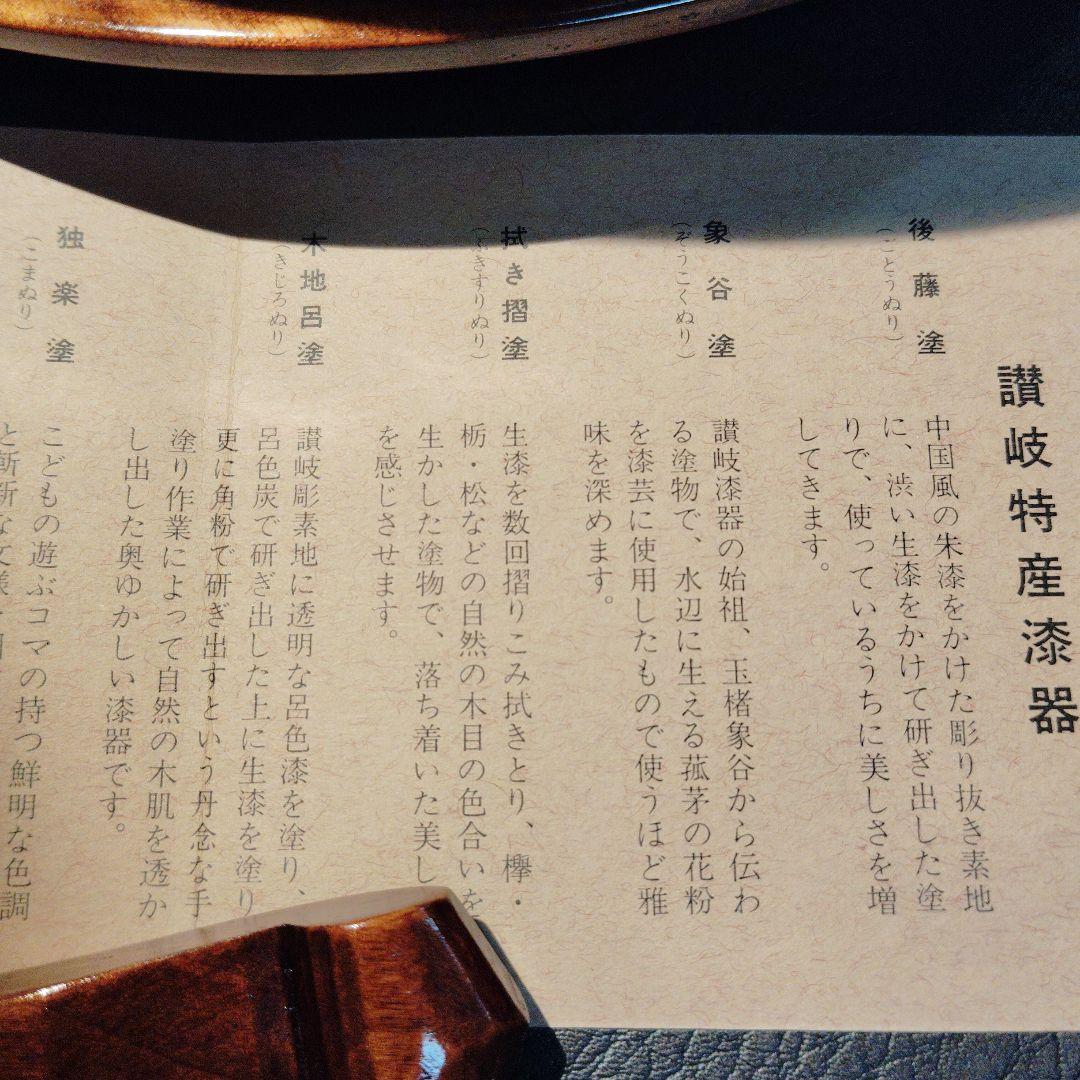 讃岐特産漆器
後藤塗
(ごとうぬり)
中国風の朱漆をかけた彫り抜き素地
に、渋い生漆をかけて研ぎ出した塗
りで、使っているうちに美しさを増
してきます。
象谷塗
(ぞうこくぬり)
讃岐漆器の始祖、玉楮象谷から伝わ
る塗物で、水辺に生える菰茅の花粉
を漆芸に使用したもので使うほど雅
味を深めます。
拭き摺塗
(ふきすりぬり)
生漆を数回摺りこみ拭きとり、欅・
栃・松などの自然の木目の色合いを
生かした塗物で、落ち着いた美し
を感じさせます。
木地呂塗
(きじろぬり)
讃岐彫素地に透明な呂色漆を塗り、
呂色炭で研ぎ出した上に生漆を塗り
更に角粉で研ぎ出すという丹念な手
塗り作業によって自然の木肌を透か
し出した奥ゆかしい漆器です。
独楽塗
(こまぬり)
こどもの遊ぶコマの持つ鮮明な色調
と斬新な文様